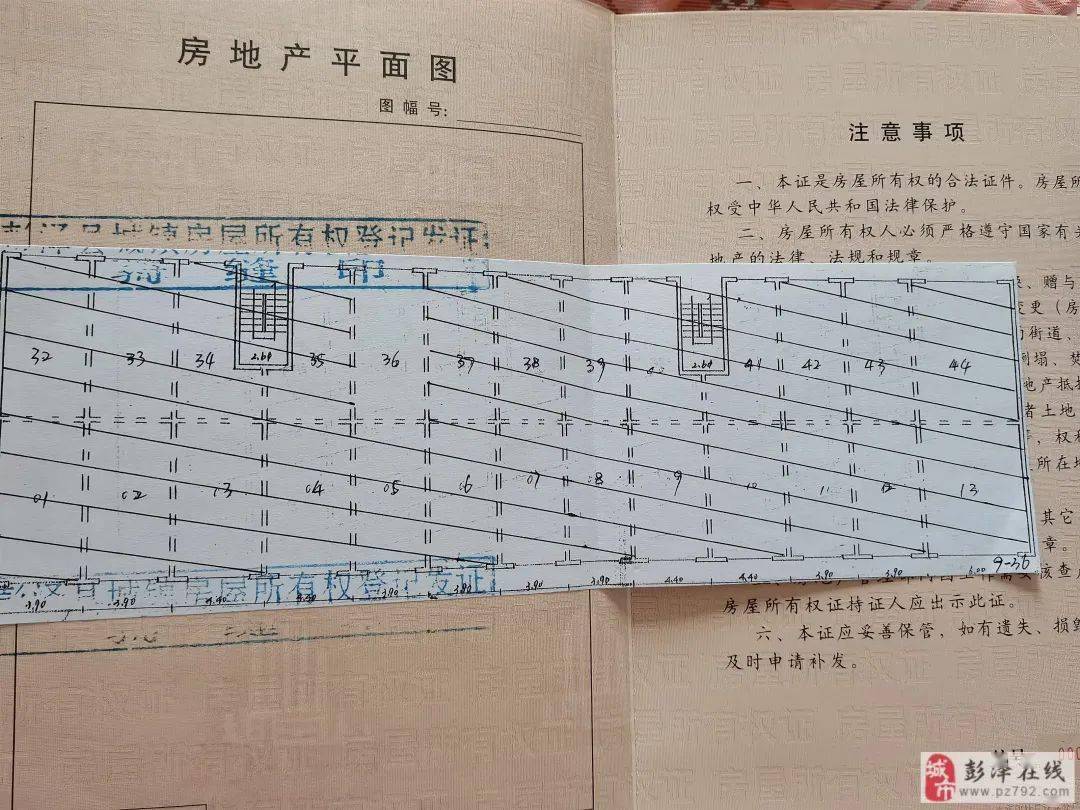 房地产平面图
图幅号:
城镇房屋所有权登记发证
骑 缝 印
32 33 34 35 36 37 38 39 41 42 43 44
2.60 2.60
01 02 03 04 05 06 07 08 09 10 11 12 13
9-36
3.90 3.90 4.40 3.90 3.90 4.40 4.40 3.90 3.90 6.00
城镇房屋所有权登记发证
注意事项
一、本证是房屋所有权的合法证件。房屋所
权受中华人民共和国法律保护。
二、房屋所有权人必须严格遵守国家有关
地产的法律、法规和规章。
、赠与
变更（房
街道、
倒塌、焚
地产抵押
者土地
，权利
所在地
其它
章。
该查房
房屋所有权证持证人应出示此证。
六、本证应妥善保管，如有遗失、损毁
及时申请补发。
城市 彭泽在线
www.pz792.com